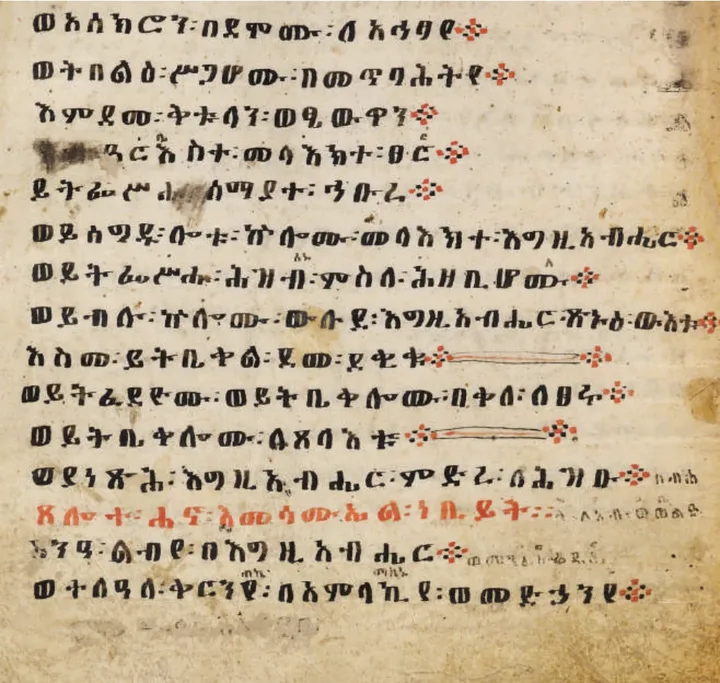 ወአሰክሮን፡በደሞሙ፡ለአኅፃየ፨
ወትበልዕ፡ሥጋሆሙ፡በመጥባሕትየ፨
እምደመ፡ቅቱላን፡ወፂውዋን፨
ዓርእስተ፡መላእክተ፡ፀር፨
ሰማያተ፡ኅቡረ፨
ወይሰግዱ፡ሎቱ፡ኵሎሙ፡መላእክተ፡እግዚአብሔር፨
ወይትፌሥሑ፡ሕዝብ፡ምስለ፡ሕዘቢሆሙ፨
ወይብሉ፡ኵሎሙ፡ውሉደ፡እግዚአብሔር፡ጽኑዕ፡ውእቱ፨
እስመ፡ይትቤቀል፡ደመ፡ደቂቁ፨ ፨
ወይትፈደዮሙ፡ወይትቤቀሎሙ፡በቀለ፡ለፀሩ፨
ወይትቤቀሎሙ፡ለጸላእቱ፨ ፨
ወያነጽሕ፡እግዚአብሔር፡ምድረ፡ለሕዝቡ፨
ጸሎተ፡ሐና፡እመ፡ሳሙኤል፡ነቢይት፡፡
ጸንዓ፡ልብየ፡በእግዚአብሔር፨
ወተለዓለ፡ቀርንየ፡በአምላኪየ፡ወመድኃንየ፨